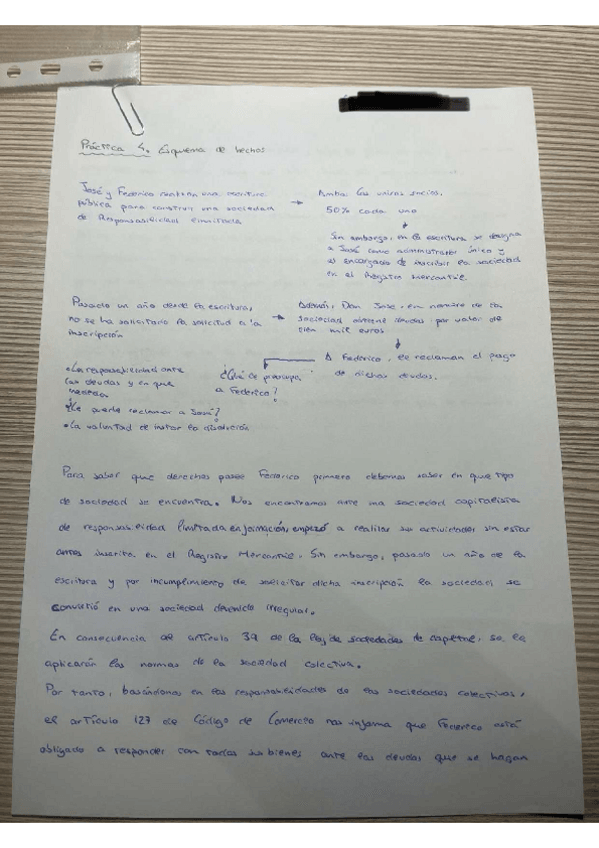 Práctica 4. Esquema de hechos
José y Federico realizan una escritura
pública para construir una sociedad
de Responsabilidad limitada
→ Ambos los únicos socios.
50% cada uno
Sin embargo, en la escritura se designa
a José como administrador único y
el encargado de inscribir la sociedad
en el Registro Mercantil.
Pasado un año desde la escritura,
no se ha solicitado la solicitud a la
inscripción
→ Además, Don Jose, en nombre de la
sociedad obtiene deudas por valor de
cien mil euros
A Federico, le reclaman el pago
de dichas deudas.
¿Qué le preocupa
a Federico?
•La responsabilidad ante
las deudas y en que
•¿Le puede reclamar a José?
•La voluntad de instar la disolución
Para saber que derechos posee Federico primero debemos saber en que tipo
de sociedad se encuentra. Nos encontramos ante una sociedad capitalista
de responsabilidad limitada en formación, empezó a realizar sus actividades sin estar
antes inscrita en el Registro Mercantil. Sin embargo, pasado un año de la
escritura y por incumplimiento de solicitar dicha inscripción la sociedad se
convirtió en una sociedad devenida irregular.
En consecuencia al artículo 39 de la ley de sociedades de capital, se le
aplicarán las normas de la sociedad colectiva.
Por tanto, basándonos en las responsabilidades de las sociedades colectivas,
el artículo 127 de Código de Comercio nos informa que Federico está
obligado a responder con todos sus bienes ante las deudas que se hagan